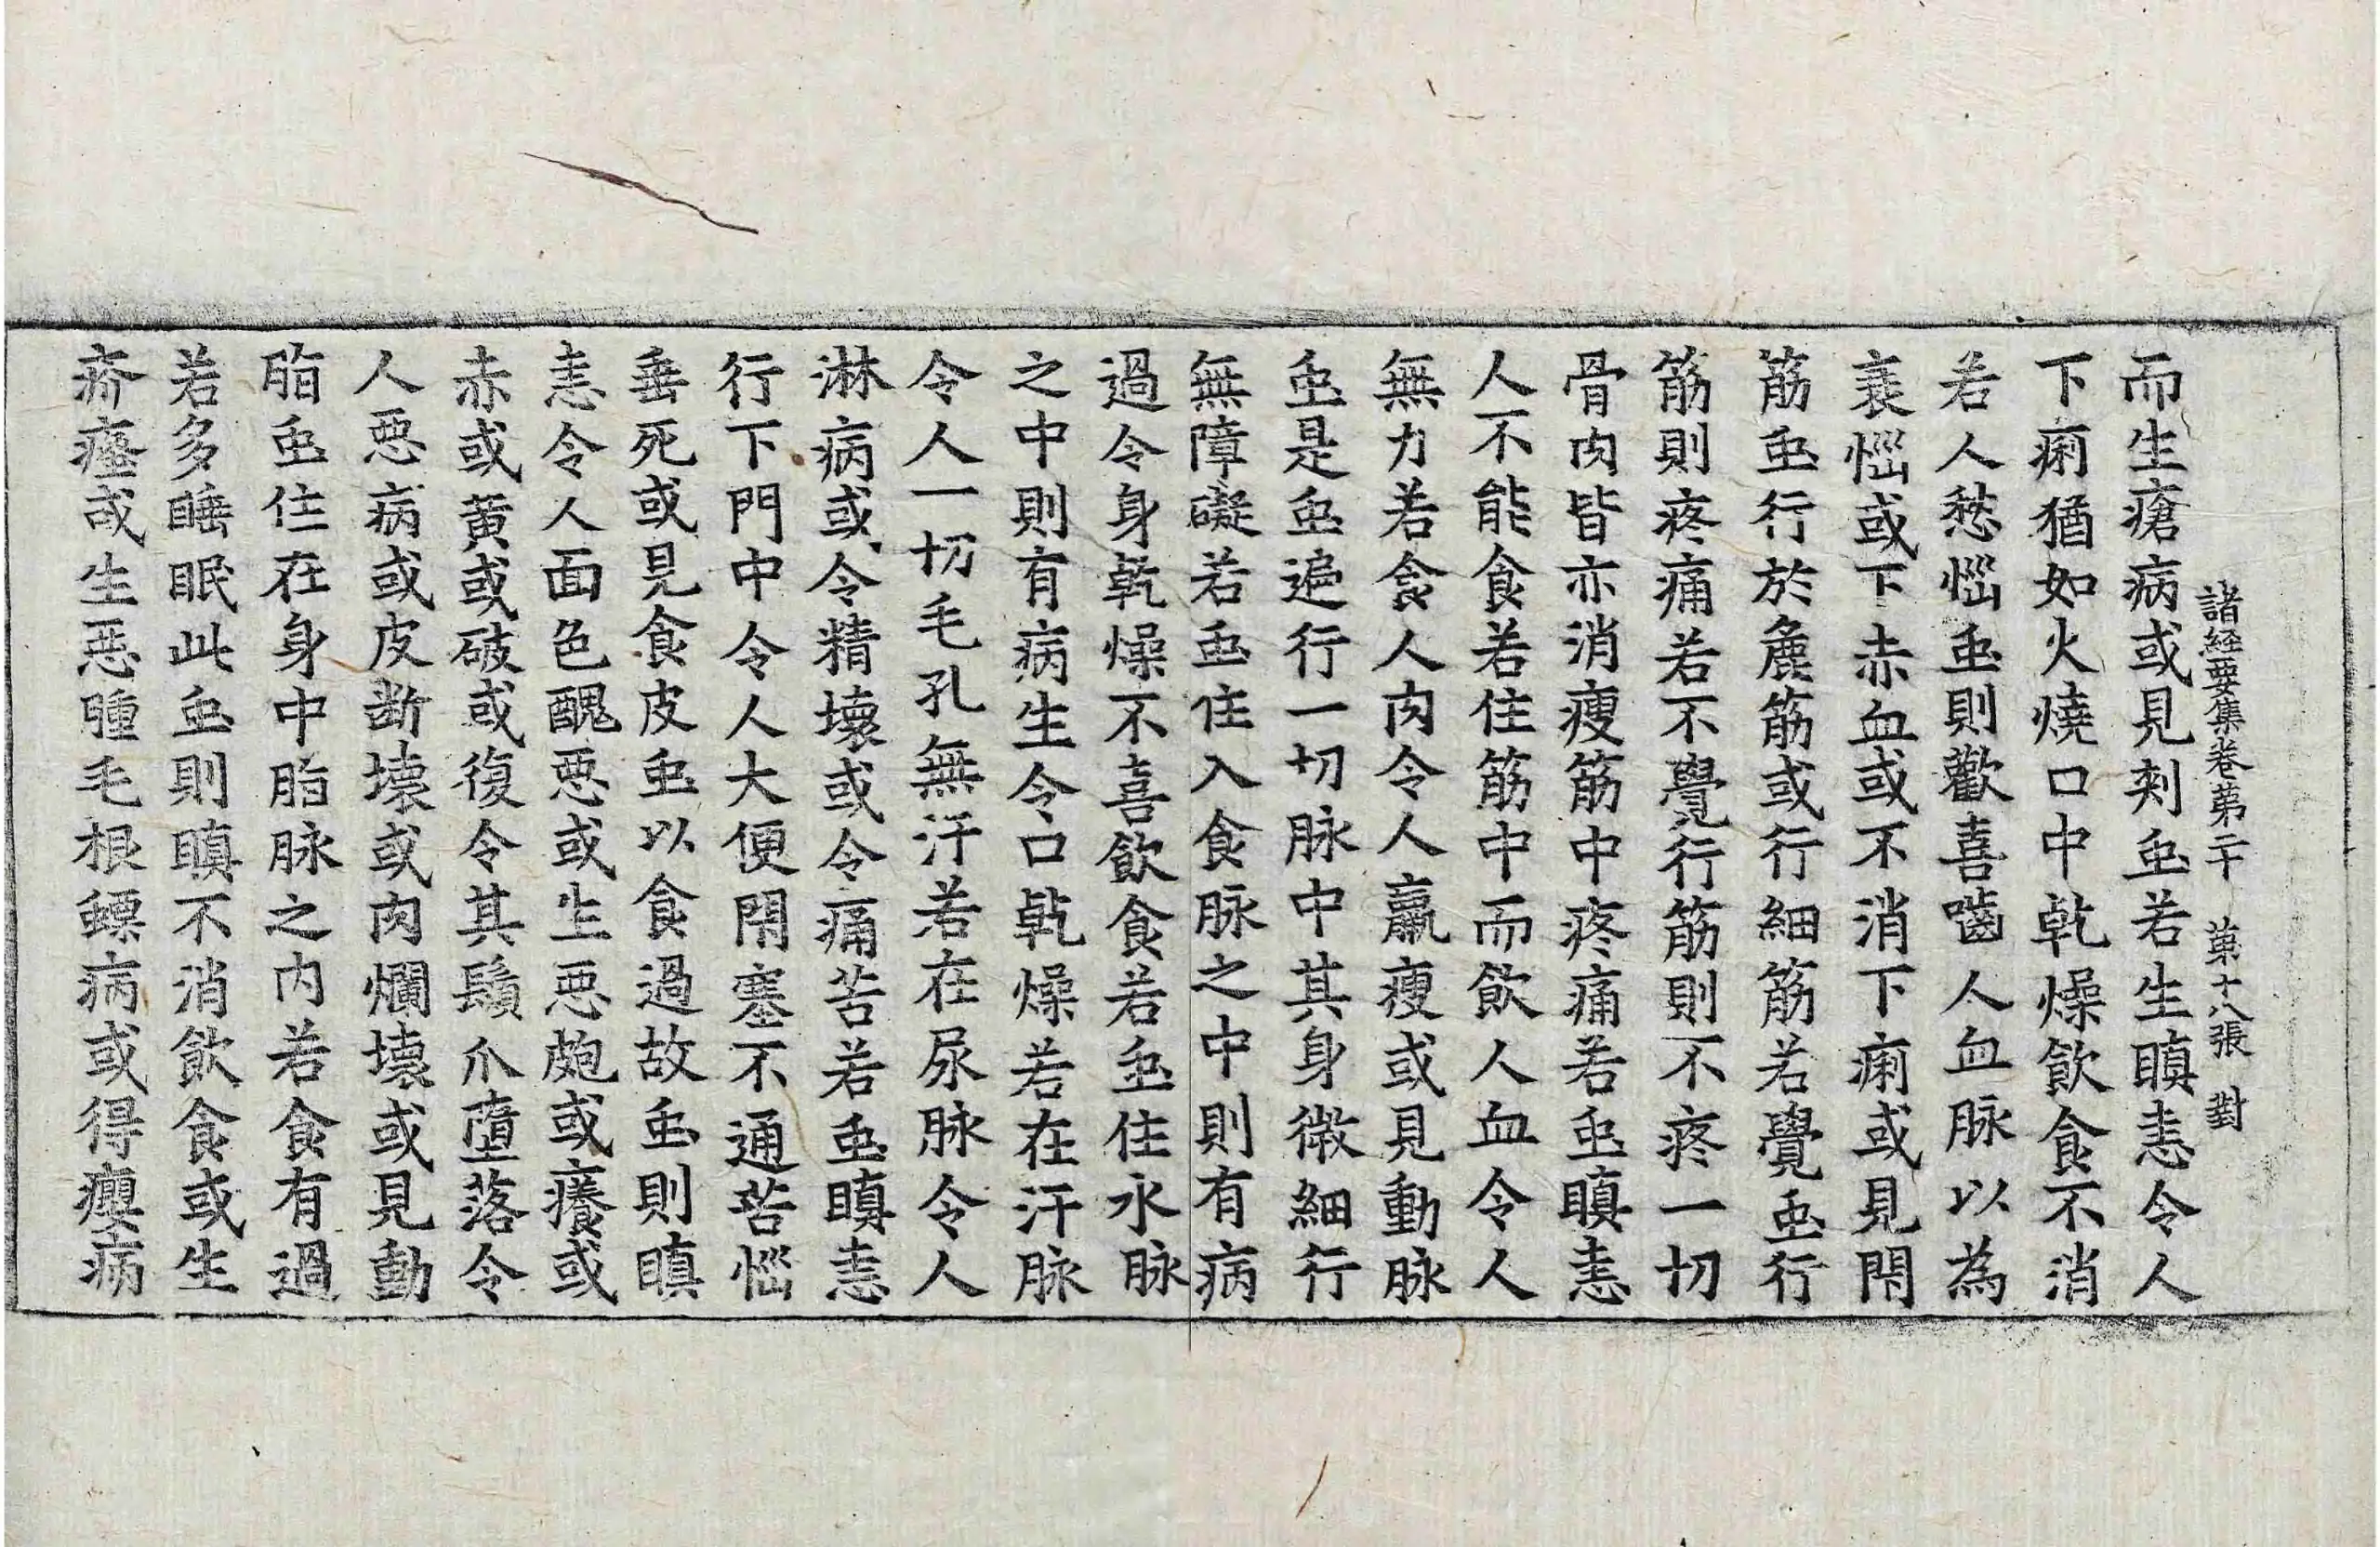 諸經要集卷第二十 第十八張 對
而生瘡病或見刾䖝若生瞋恚令人
下痢猶如火燒口中乹燥飲食不消
若人愁惱䖝則歡喜嚙人血脉以為
衰惱或下赤血或不消下痢或見閇
筋䖝行於麁筋或行細筋若覺䖝行
筋則疼痛若不覺行筋則不疼一切
骨肉皆亦消瘦筋中疼痛若䖝瞋恚
人不能食若住筋中而飲人血令人
無力若食人肉令人羸瘦或見動脉
䖝是䖝遍行一切脉中其身微細行
無障礙若䖝住入食脉之中則有病
過令身乹燥不喜飲食若䖝住水脉
之中則有病生令口乹燥若在汗脉
令人一切毛孔無汗若在尿脉令人
淋病或令精壞或令痛苦若䖝瞋恚
行下門中令人大便閇塞不通苦惱
垂死或見食皮䖝以食過故䖝則瞋
恚令人面色醜惡或生惡皰或癢或
赤或黃或破或復令其鬚爪墮落令
人惡病或皮斷壞或肉爛壞或見動
脂䖝住在身中脂脉之內若食有過
若多睡眠此䖝則瞋不消飲食或生
疥癗或生惡腫毛根螵病或得癭病